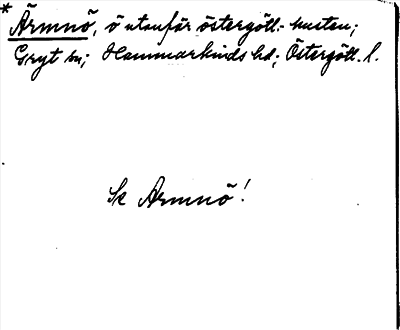 * Ärmnö, ö utanför östergötl.-kusten;
Gryt sn; Hammarkinds hd; Östergötl. l.
Se Armnö!